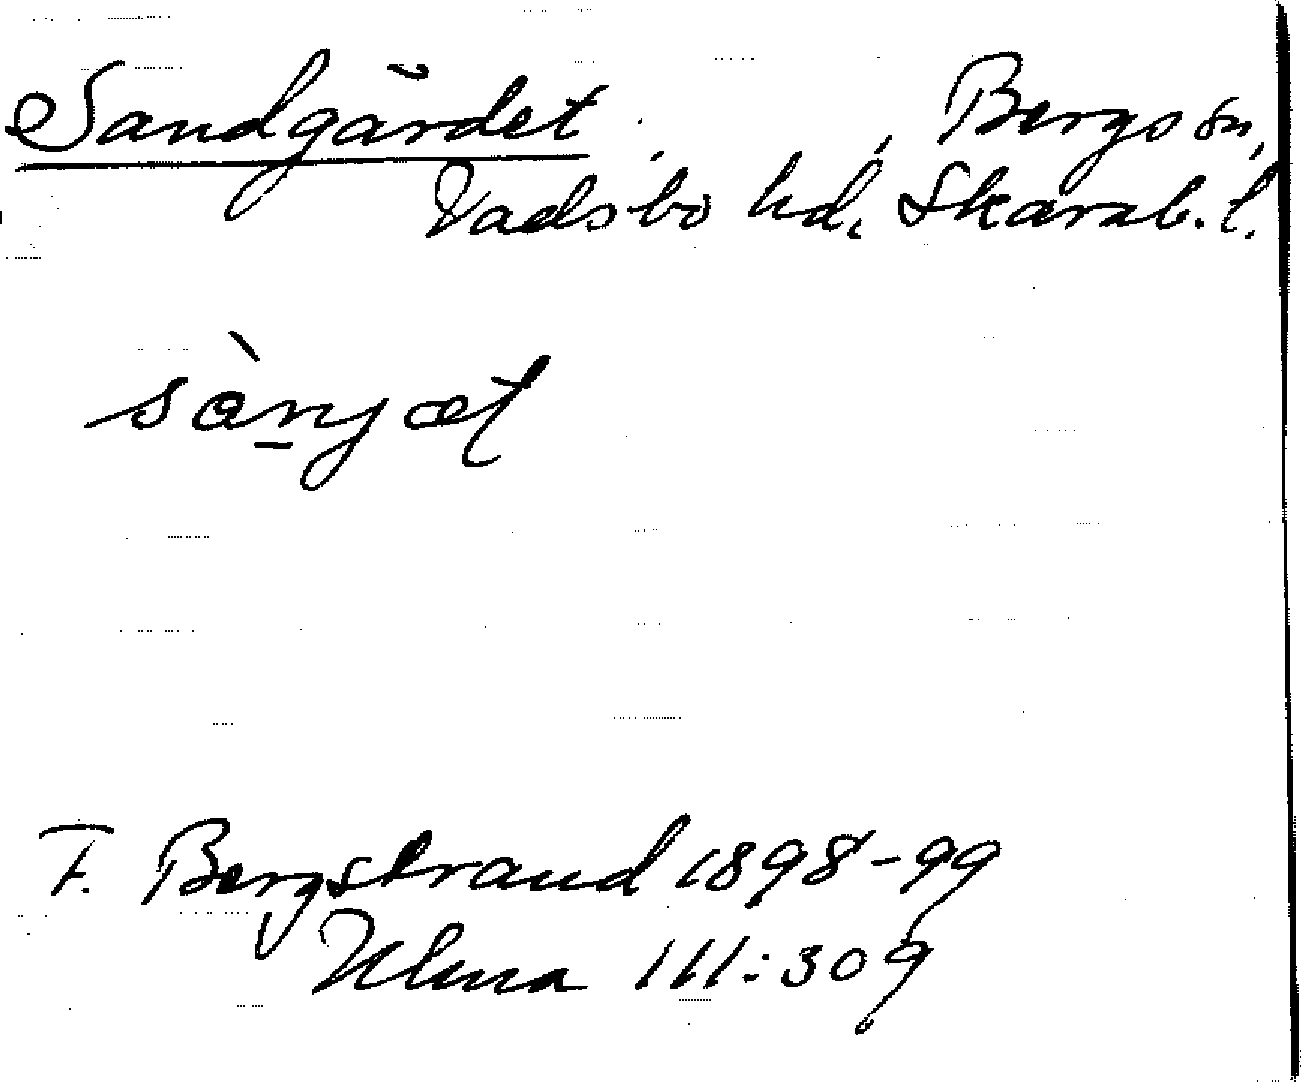 Sandgärdet, Bergs sn,
Vadsbo hd, Skarab. l.
sàn̠jæt
F. Bergstrand 1898-99
Ulma 111:309